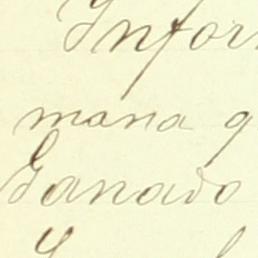 Infor
mana q
Ganado